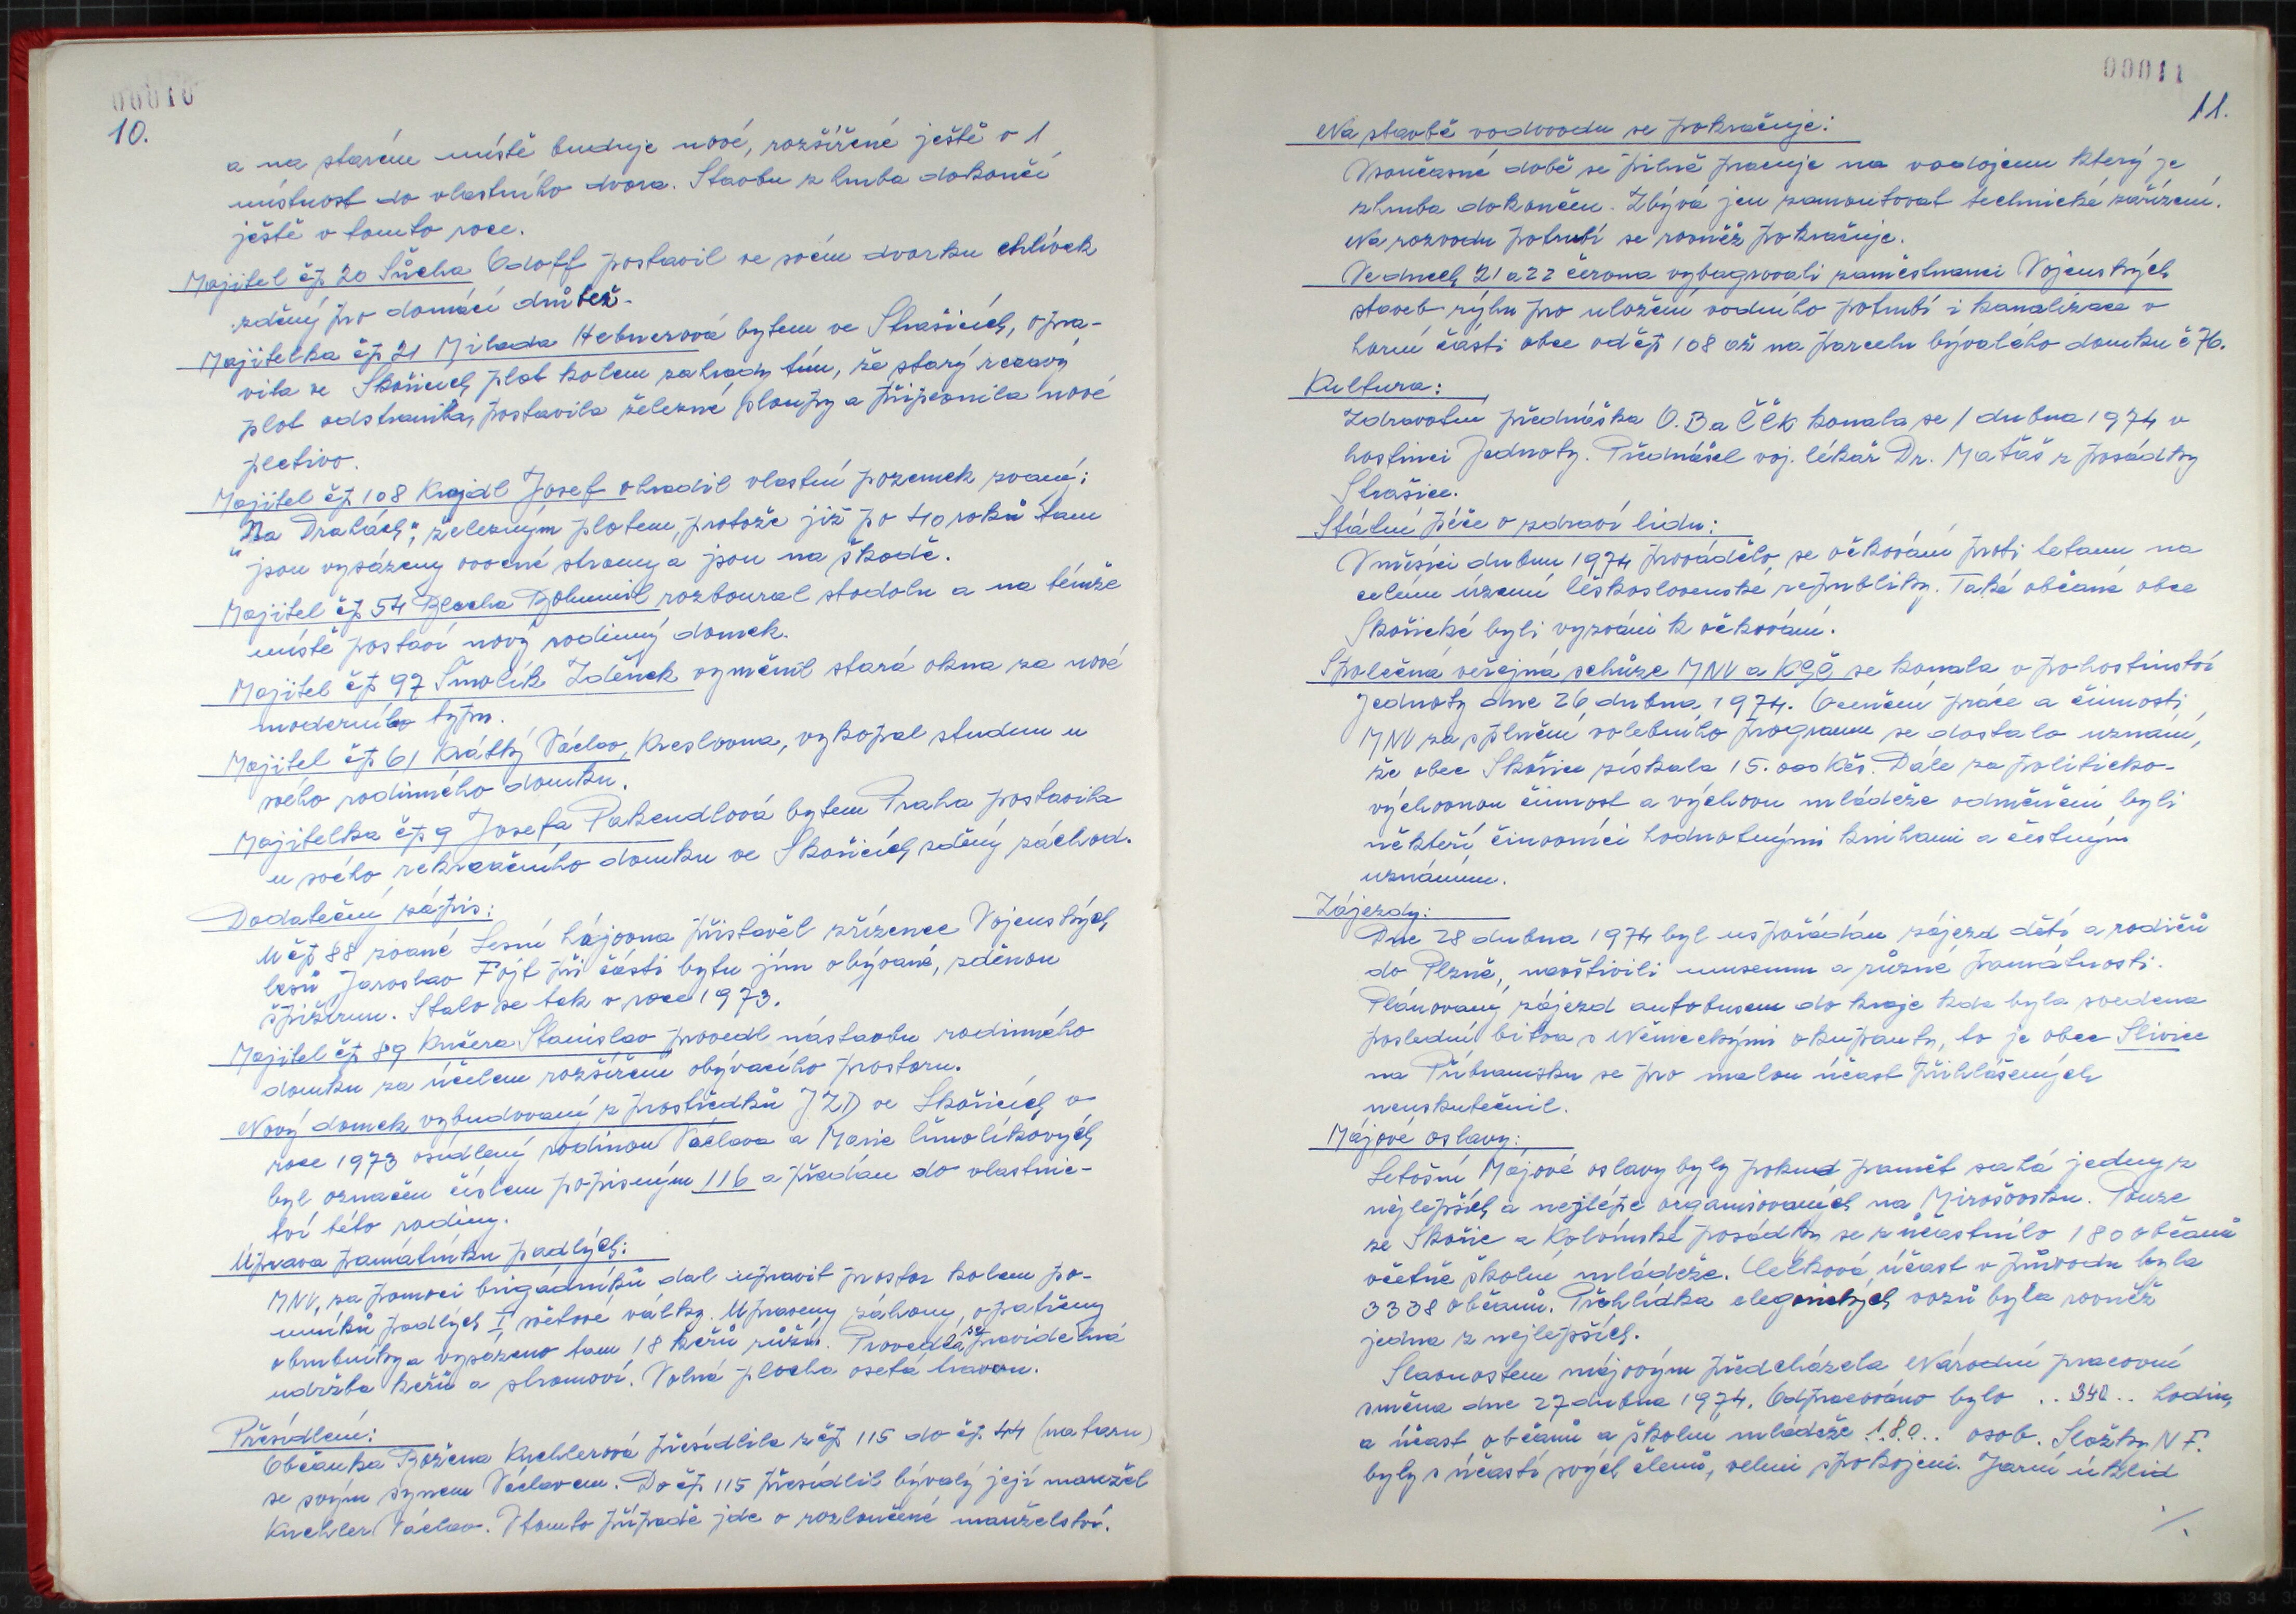 00010
10.
a na starém místě buduje nové, rozšířené ještě o 1
místnost do vlastního dvora. Stavbu z hruba dokončí
ještě v tomto roce.
Majitel čp 20 Sůcha Odolf postavil ve svém dvorku chlívek
zděný pro domácí drůbež.
Majitelka čp 21 Milada Hebnerová bytem ve Strašicích, opra-
vila ve Skořicích plot kolem zahrady tím, že starý rezavý
plot odstranila, postavila železné sloupy a připevnila nové
pletivo.
Majitel čp 108 Krajdl Josef ohradil vlastní pozemek zvaný:
"Na Drahách", železným plotem, protože již po 40 roků tam
jsou vysázeny ovocné stromy a jsou na škodě.
Majitel čp 54 Blecha Bohumil rozboural stodolu a na témže
místě postaví nový rodinný domek.
Majitel čp 97 Šmolík Zdeněk vyměnil stará okna za nové
moderního typu.
Majitel čp 61 Krátký Václav, Kreslovna, vykopal studnu u
svého rodinného domku.
Majitelka čp 9 Josefa Pakendlová bytem Praha postavila
u svého rekreačního domku ve Skořicích zděný záchod.
Dodatečný zápis:
U čp 88 zvané Lesní hájovna přistavěl zřízenec Vojenských
lesů Jaroslav Fojt při části bytu jím obývané, zděnou
špižírnu. Stalo se tak v roce 1973.
Majitel čp 89 Kučera Stanislav provedl nástavbu rodinného
domku za účelem rozšíření obývacího prostoru.
Nový domek vybudovaný z prostředků JZD ve Skořicích v
roce 1973 osídlený rodinou Václava a Marie Šmolíkových
byl označen číslem popisným 116 a předán do vlastnic-
tví této rodiny.
Úprava památníku padlých:
MNV, za pomoci brigádníků dal upravit prostor kolem po-
mníku padlých I. světové války. Upraveny záhony, opatřeny
obrubníky a vysazeno tam 18 keřů růží. Provedla se pravidelná
udržba keřů a stromoví. Volná plocha osetá travou.
Přesídlení:
Občanka Božena Kuchlerová přesídlila z čp 115 do čp. 44 (na faru)
se svým synem Václavem. Do čp 115 přesídlil bývalý její manžel
Kuchler Václav. V tomto případě jde o rozloučené manželství.
00011
11.
Na stavbě vodvodu se pokračuje:
Vsoučasné době se pilně pracuje na vodojemu který je
zhruba dokončen. Zbývá jen zamontovat technické zařízení.
Na rozvodu potrubí se rovněž pokračuje.
Ve dnech 21 a 22 června vybagrovali zaměstnanci Vojenských
staveb rýhu pro uložení vodního potrubí i kanalizace v
horní části obce od čp 108 až na parcelu bývalého domku č 76.
Kultura:
Zdravotní přednáška O.B a ČČK konala se 1 dubna 1974 v
hostinci Jednoty. Přednášel voj. lékař Dr. Matáš z posádky
Strašice.
Státní péče o zdraví lidu:
V měsíci dubnu 1974 provádělo se očkování proti tetanu na
celém území Československé republiky. Také občané obce
Skořické byli vyzváni k očkování.
Společná veřejná schůze MNV a KSČ se konala v pohostinství
Jednoty dne 26 dubna 1974. Ocenění práce a činnosti
MNV za splnění volebního programu se dostalo uznání,
že obec Skořice získala 15.000 Kčs. Dále za politicko-
výchovnou činnost a výchovu mládeže odměněni byli
někteří činovníci hodnotnými knihami a čestným
uznáním.
Zájezdy:
Dne 28 dubna 1974 byl uspořádán zájezd dětí a rodičů
do Plzně, navštívili museum a různé památnosti.
Plánovaný zájezd autobusem do kraje kde byla svedena
poslední bitva s Německými okupanty, to je obec Slivice
na Příbramsku se pro malou účast přihlášených
neuskutečnil.
Májové oslavy:
Letošní Májové oslavy byly pokud paměť sahá jedny z
nejlepších a nejlépe organisovaných na Mirošovsku. Pouze
ze Skořic a Kolvínské posádky se zúčastnilo 180 občanů
včetně školní mládeže. Celková účast v průvodu byla
3338 občanů. Přehlídka alegorických vozů byla rovněž
jedna z nejlepších.
Slavnostem májovým předcházela Národní pracovní
směna dne 27 dubna 1974. Odpracováno bylo .. 340.. hodin,
a účast občanů a školní mládeže .180.. osob. Složky N F.
byly s účastí svých členů, velmi spokojeni. Jarní úklid
./.